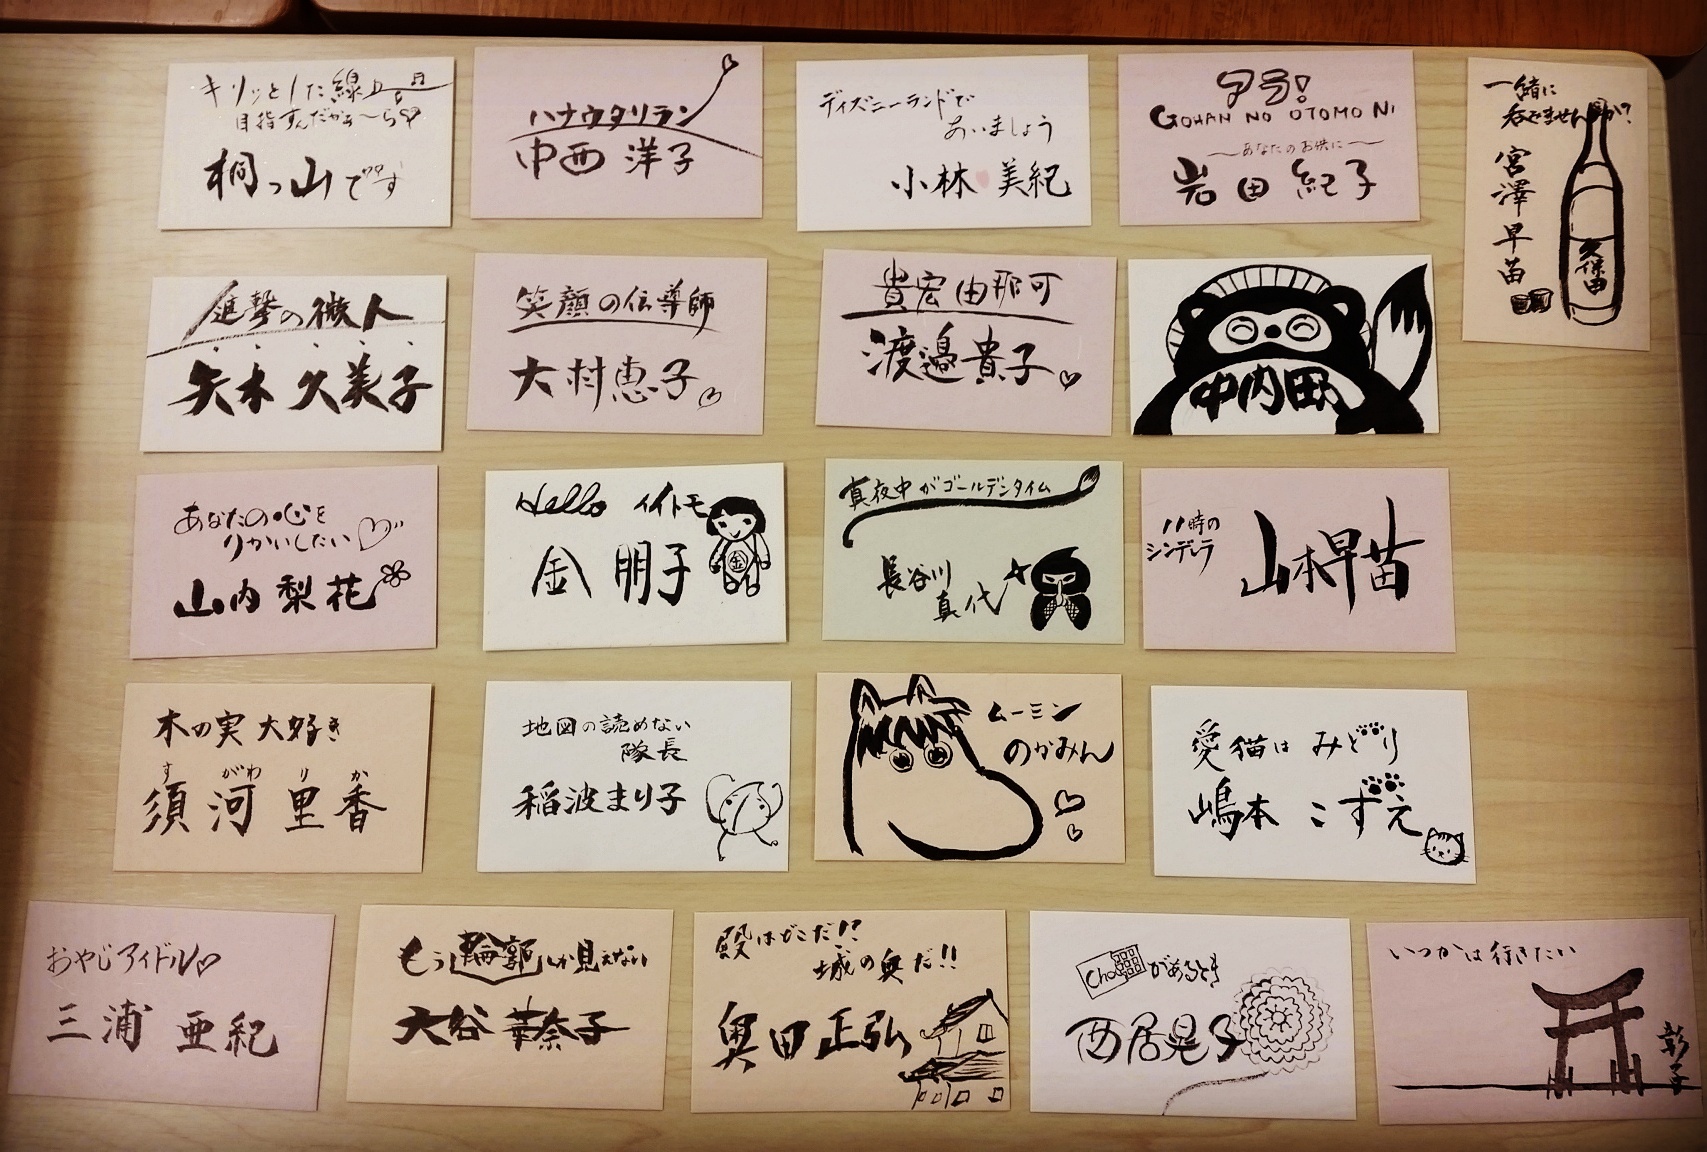 キリッとした線
目指すんだがぁ〜らỌ
桐っ山です
ハナウタリラン
中西 洋子
ディズニーランドで
あいましょう
小林 美紀
アラ!
GOHAN NO OTOMO NI
〜あなたのお供に〜
岩田 紀子
一緒に
呑みませんか?
宮澤早苗
久保田
進撃の微人
矢木 久美子
笑顔の伝導師
大村恵子
貴宏由那可
渡邉貴子
中内田
あなたの心を
りかいしたい
山内 梨花
Hello イイトモ
金 朋子
金
真夜中がゴールデンタイム
長谷川
真代
11時の
シンデレラ
山本早苗
木の実 大好き
す がわ り か
須河里香
地図の読めない
隊長
稲波まり子
ムーミン
のかみん
愛猫は みどり
嶋本 こずえ
おやじアイドル
三浦 亜紀
もう輪郭しか見えない
大谷 華奈子
殿はどこだ!?
城の奥だ!!
奥田正弘
Chocoがあるとき
西居晃子
いつかは行きたい
彰子